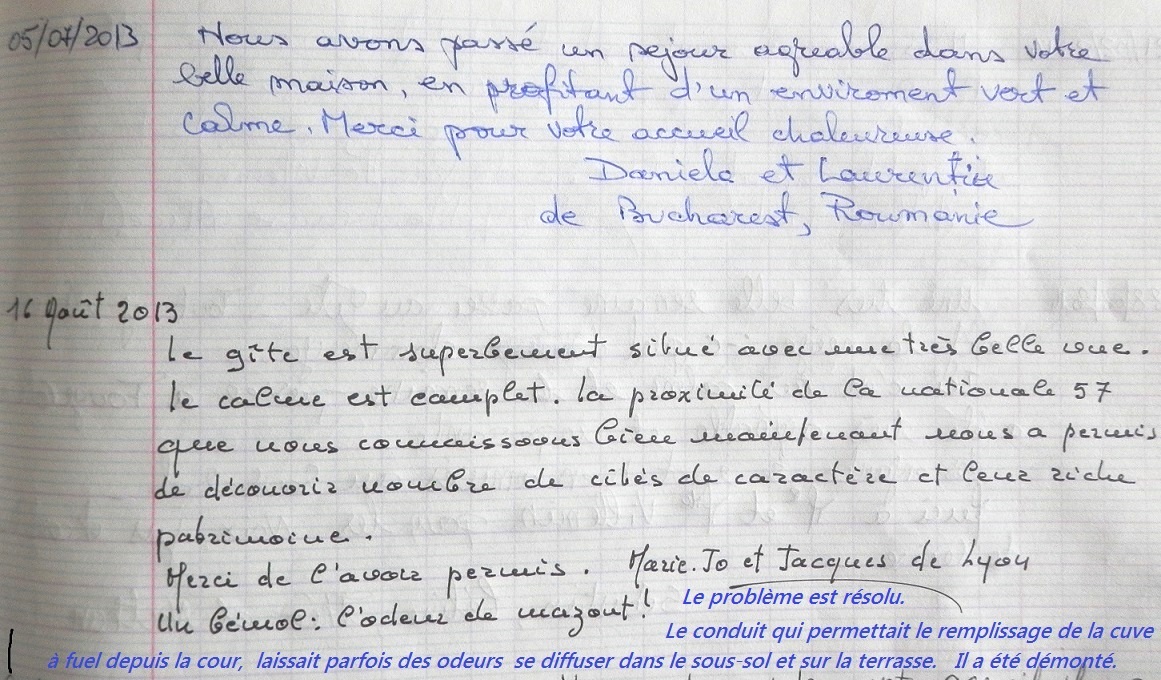 05/07/2013 Nous avons passé un sejour agreable dans votre
belle maison, en profitant d'un enviroment vert et
calme. Merci pour votre accueil chaleureuse.
Daniela et Laurenție
de Bucharest, Roumanie
16 Août 2013
Le gîte est superbement situé avec une très belle vue.
Le calme est complet. La proximité de la nationale 57
que nous connaissons bien maintenant nous a permis
de découvrir nombre de cités de caractère et leur riche
patrimoine.
Merci de l'avoir permis. Marie.Jo et Jacques de Lyon
Un bémol: l'odeur de mazout! Le problème est résolu.
Le conduit qui permettait le remplissage de la cuve
à fuel depuis la cour, laissait parfois des odeurs se diffuser dans le sous-sol et sur la terrasse. Il a été démonté.